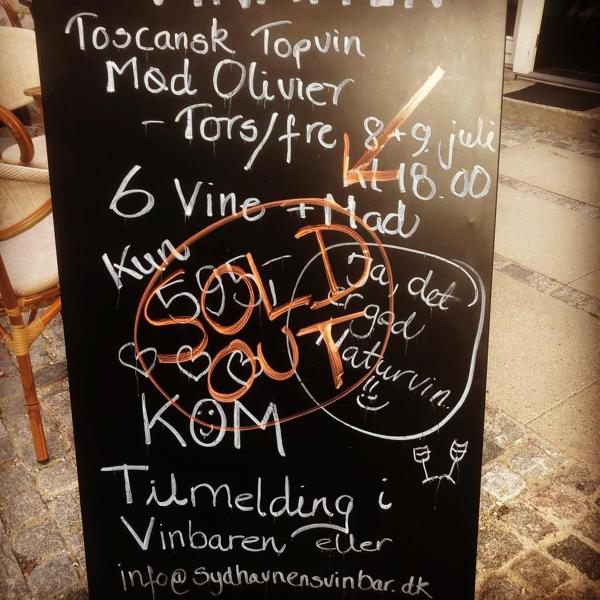 Toscansk Topvin
Mød Olivier
- Tors/fre 8+9 juli
kl 18.00
6 Vine + Mad
Kun
SOLD
OUT
Ja, det
er god
Naturvin
KØM
Tilmelding i
Vinbaren eller
info@sydhavnensvinbar.dk